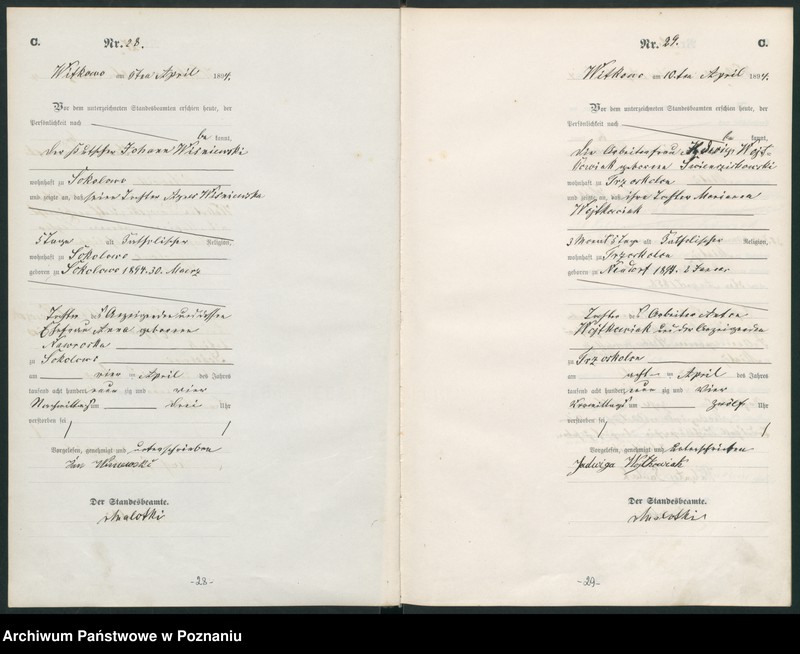 C. Nr. 28.
Witkowo am 6ten April 1894.
Vor dem unterzeichneten Standesbeamten erschien heute, der
Persönlichkeit nach
be kannt,
der Kutscher Johann Wiśniewski
wohnhaft zu Sokolowo
und zeigte an, daß seine Tochter Agnes Wiśniewska
5 Tage alt katholischer Religion,
wohnhaft zu Sokolowo
geboren zu Sokolowo 1894. 30. Maerz
Tochter des Anzeigenden und dessen
Ehefrau Anna geborenen
Nawrocka
zu Sokolowo
am vier ten April des Jahres
tausend acht hundert neun zig und vier
Nachmittags um drei Uhr
verstorben sei
Vorgelesen, genehmigt und unterschrieben
Jan Wisniewski
Der Standesbeamte.
Malotki
-28-
Nr. 29. C.
Witkowo am 10.ten April 1894.
Vor dem unterzeichneten Standesbeamten erschien heute, der
Persönlichkeit nach
be kannt,
die Arbeiterfrau Hedwig Wojt-
kowiak geborene
wohnhaft zu Trzoskolon
und zeigte an, daß ihre Tochter Marianna
Wojtkowiak
3 Monat 6 Tage alt katholischer Religion,
wohnhaft zu Trzoskolon
geboren zu Neudorf 1894. 2 Januar
Tochter des Arbeiter Anton
Wojtkowiak und der Anzeigenden
zu Trzoskolon
am acht ten April des Jahres
tausend acht hundert neun zig und vier
Vormittags um zwölf Uhr
verstorben sei
Vorgelesen, genehmigt und unterschrieben
Jadwiga Wojtkowiak
Der Standesbeamte.
Malotki
-29-
Archiwum Państwowe w Poznaniu